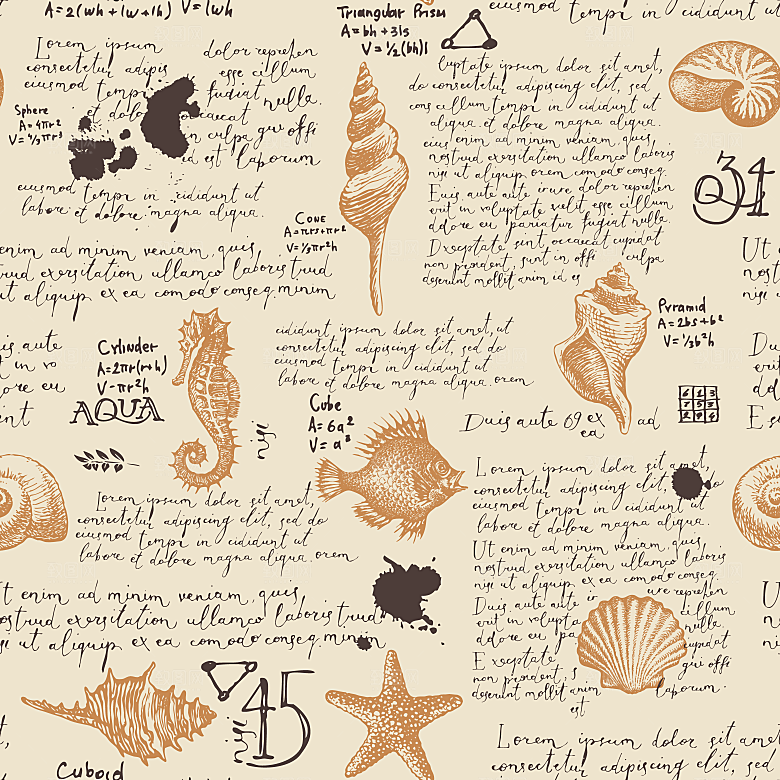 A=2(wh+lw+lh) V=lwh
Triangular Prism
A=bh+3ls
V=½(bh)l
eiusmod tempi in cididunt ut
Lorem ipsum dolor reprehen
consectetur adipis esse cillum
eiusmod temp fugiat nulla.
et dolo occaecat
in culpa qui offi
id est laborum
Sphere
A=4πr²
V=4/3πr³
eiusmod tempi in cididunt ut
labore et dolore magna aliqua.
luptate ipsum dolor sit amet,
do consectetur adipiscing elit, sed
cons cillum tempi in cididunt ut
aliqua. et dolore magna aliqua.
eius enim ad minim veniam, quis,
nostrud exersitation ullamco laboris
nisi ut aliquip ex ea comodo conseq.
Euis aute aute irure dolor reprehen
erit in voluptate velit esse cillum
dolore eu pariatur fugiat nulla
Dxceptate sint, occaecat cupidat
non proident, sunt in offi culpa
deserunt mollit anim id es
Q34
Cone
A=πrs+πr²
V=⅓πr²h
enim ad minim veniam, quis,
trud exersitation ullamco laboris trud
ut aliquip ex ea comodo conseq. minim
Ut
nos
nisi
Pyramid
A=2bs+b²
V=⅓b²h
is aute
in vo
ore eu
int
Cylinder
A=2πr(r+h)
V=πr²h
AQUA
cididunt, ipsum dolor sit amet, ut
consectetur adipiscing elit, sed
eiusmod tempi in cididunt ut do
labore et dolore magna aliqua. orem
Cube
A=6a²
V=a³
nisi
Duis aute 69 ex ad
ea
6 1 3
7 5 3
2 9 4
Du
erit
dol
E s
Lorem ipsum dolor sit amet,
consectetur adipiscing elit, sed do
eiusmod tempi in cididunt ut
labore et dolore magna aliqua. orem
Lorem ipsum dolor sit amet,
consectetur adipiscing elit, do
eiusmod tempi in cididunt ut
labore et dolore magna aliqua.
Ut enim ad minim veniam, quis,
nostrud exersitation ullamco laboris
nisi ut aliquip ex ea comodo conseq.
Duis aute aute ir ure reprehen
erit in volupta cillum
dolore eu pa nulla
Exceptate cupidat
non proident, s qui offi
deserunt mollit anim laborum.
est
t enim ad minim veniam, quis,
ostrud exersitation ullamco laboris trud
isi ut aliquip ex ea comodo conseq. minim
nisi
45
Cuboid
Lorem ipsum dolor sit amet,
consectetur adipiscing elit, sed
eiusmod tempi in cididunt ut